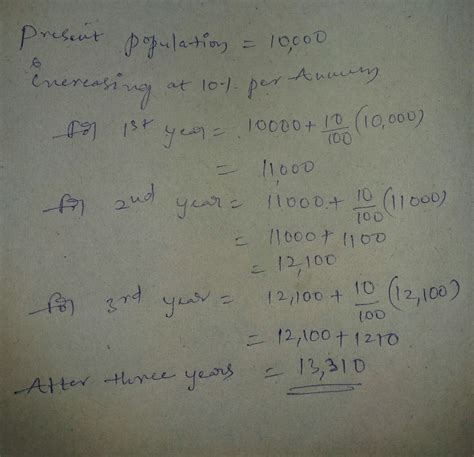 Present population = 10,000
Increasing at 10% per Annum
for 1st year = 10000 + 10/100 (10,000)
= 11,000
for 2nd year = 11000 + 10/100 (11000)
= 11000 + 1100
= 12,100
for 3rd year = 12,100 + 10/100 (12,100)
= 12,100 + 1210
After three years = 13,310